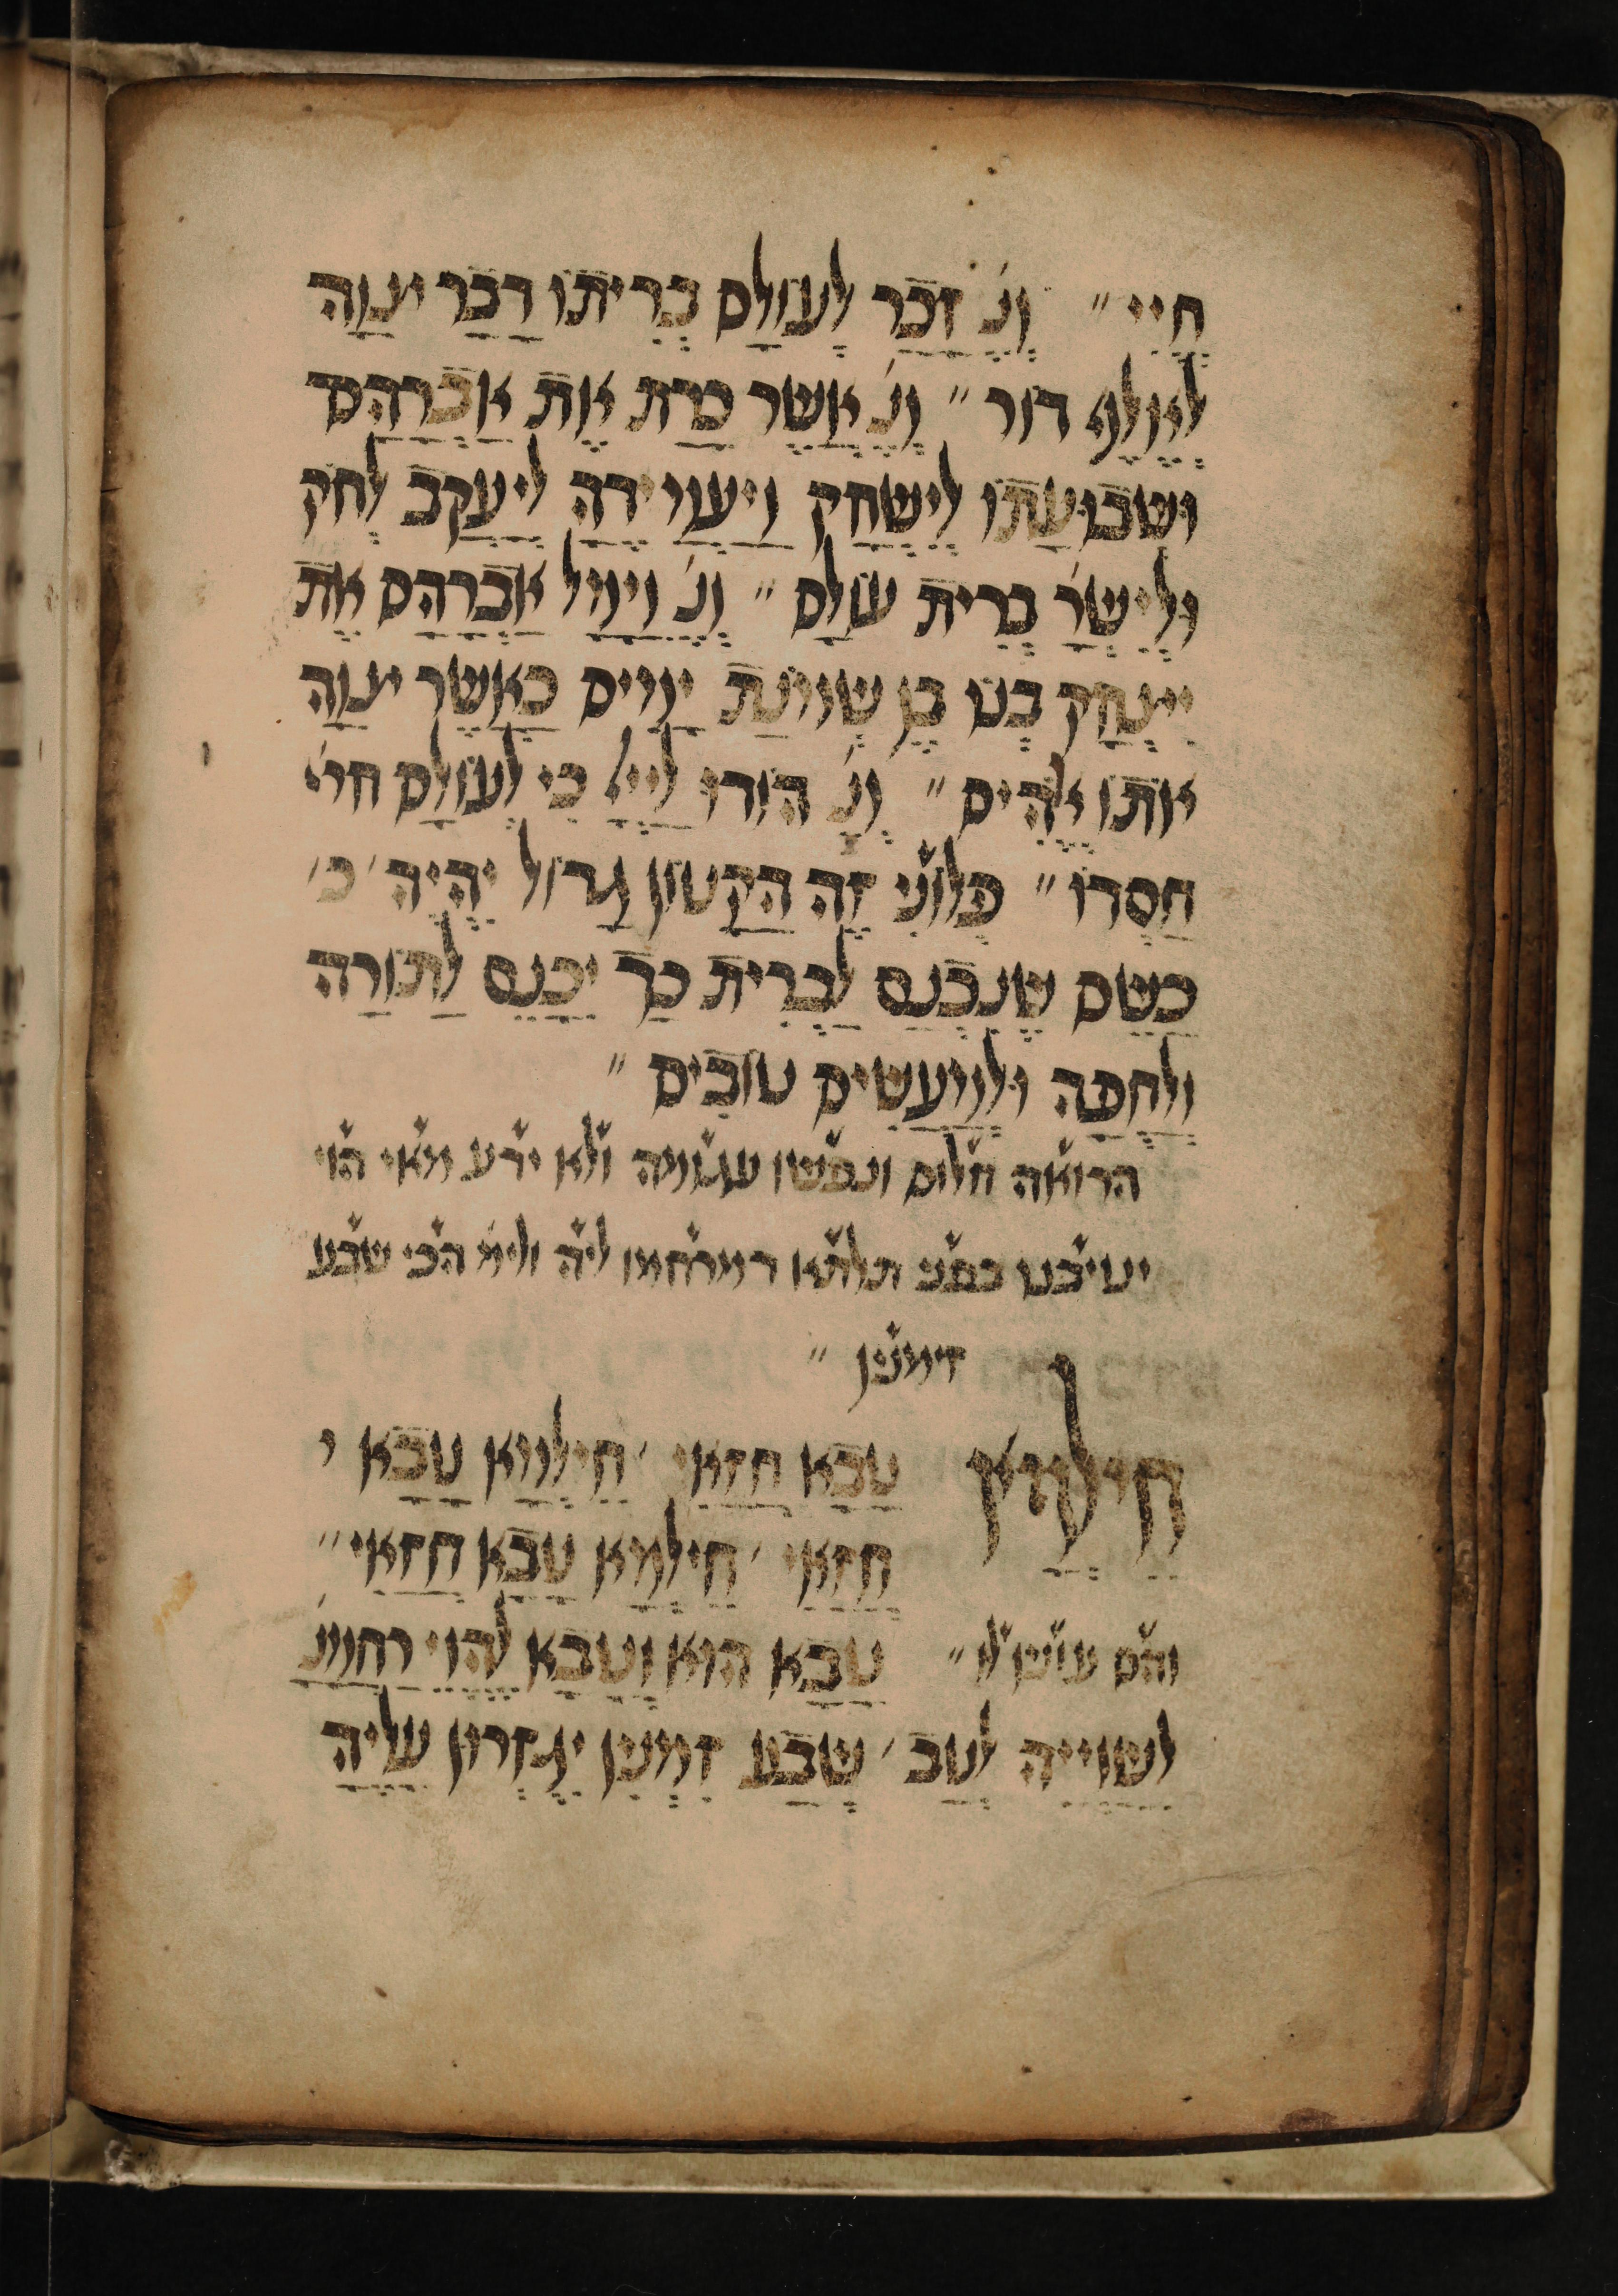 חֲיִי ״ וְנֶ׳ זָכַר לְעוֹלָם בְּרִיתוֹ דָּבָר צִוָּה
לְאֶלֶף דּוֹר ״ וְנֶ׳ אֲשֶׁר כָּרַת אֶת אַבְרָהָם
וּשְׁבוּעָתוֹ לְיִשְׂחָק וַיַּעֲמִידֶהָ לְיַעֲקֹב לְחֹק
וּלְיִשְׂרָ׳ בְּרִית עוֹלָם ״ וְנֶ׳ וַיָּמָל אַבְרָהָם אֶת
יִצְחָק בְּנוֹ בֶּן שְׁמוֹנַת יָמִים כַּאֲשֶׁר צִוָּה
אוֹתוֹ אֱלֹהִים ״ וְנֶ׳ הוֹדוּ לַייָ כִּי לְעוֹלָם חס׳
חַסְדּוֹ ״ פְּלוֹנִי זֶה הַקָּטוֹן גָּדוֹל יִהְיֶה ׳ כ׳
כְּשֵׁם שֶׁנִּכְנַס לִבְרִית כָּךְ יִכָּנֵס לְתוֹרָה
וּלְחֻפָּה וּלְמַעֲשִׂים טוֹבִים ״
הרואה חלום ונפשו עגומה ולא ידע מאי הוי
יטיבנו באפי תלתא דמרחמו ליה ולימ׳ הכי שבע
זימנין ״
חֵילְמָא
טָבָא חֲזַאי ׳ חֵילְמָא טָבָא
חֲזַאי ׳ חֵילְמָא טָבָא חֲזַאי ״
והם עונין לו ״ טָבָא הוּא וְטָבָא לֶהֱוֵי רַחֲמָנָ׳
לְשַׁוְּיֵיהּ לְטָב ׳ שְׁבַע זִמְנִין יִגְזְרוּן עֲלֵיהּ